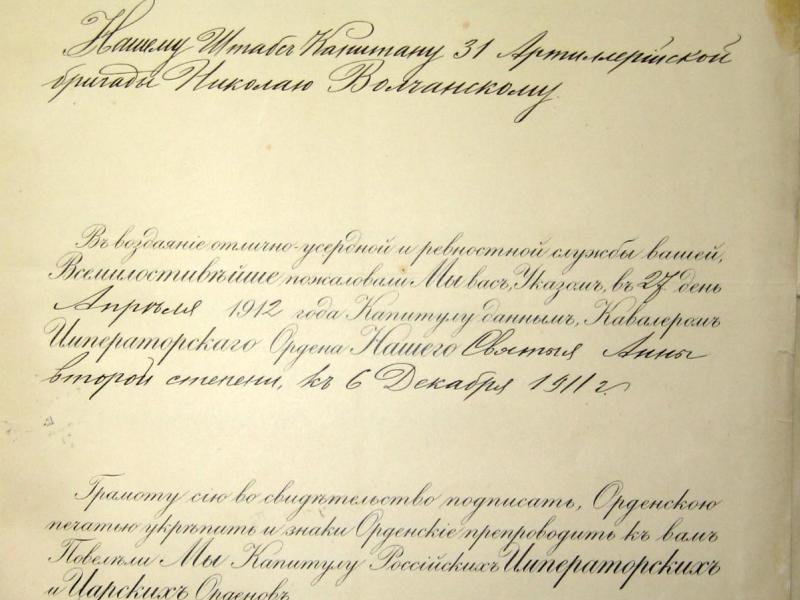 Нашему Штабсъ Капитану 31 Артиллерійской
бригады Николаю Волчанскому.
Въ воздаяніе отлично-усердной и ревностной службы вашей,
Всемилостивѣйше пожаловали Мы васъ, Указомъ, въ 27 день
Апрѣля 1912 года Капитулу даннымъ, Кавалеромъ
Императорскаго Ордена Нашего Святыя Анны
второй степени, къ 6 Декабря 1911 г.
Грамоту сію во свидѣтельство подписать, Орденскою
печатью укрѣпить и знаки Орденскіе препроводить къ вамъ
Повелѣли Мы Капитулу Россійскихъ Императорскихъ
и Царскихъ Орденовъ